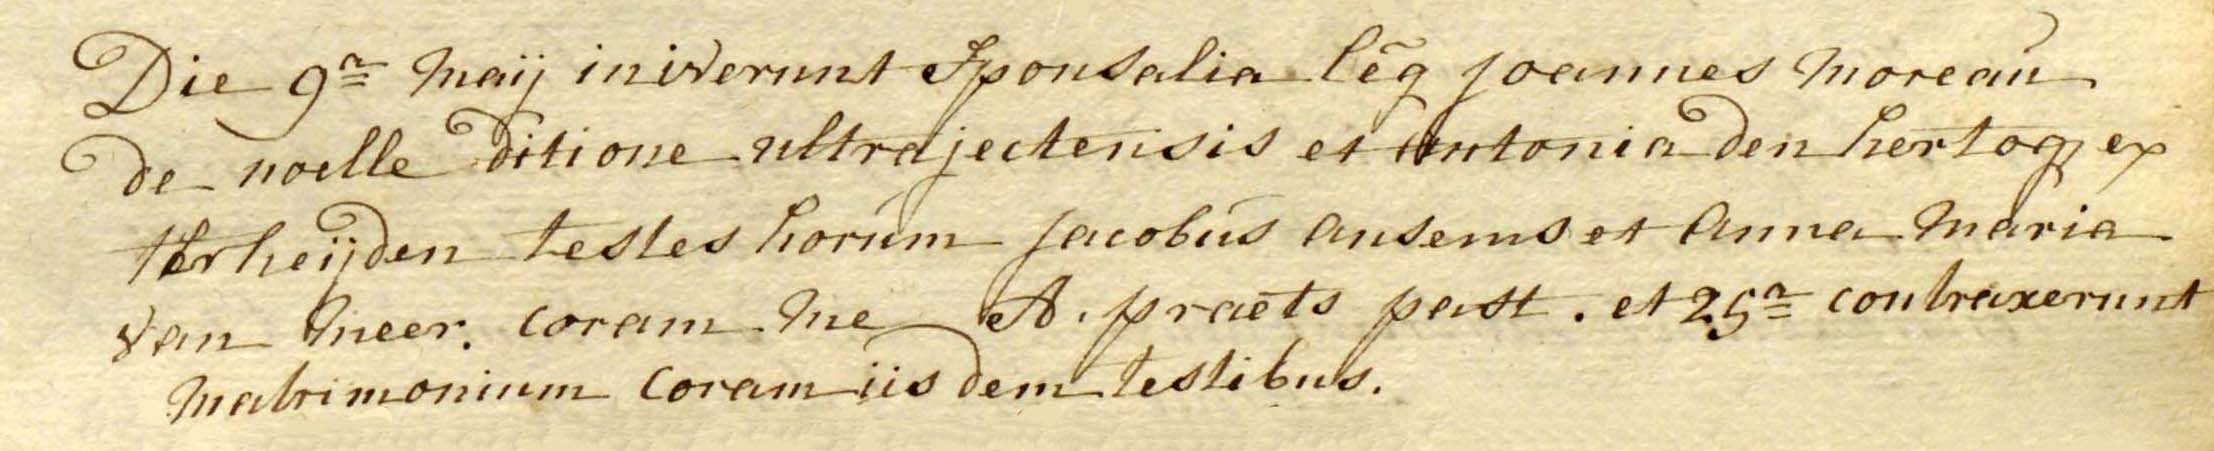 Die 9ª maij iniverunt Sponsalia lẽg joannes moreau
de noelle ditione ultrajectensis et antonia den hertog ex
terheijden testes horum jacobus ansems et anna maria
van meer. coram me A. praets past. et 25ª contraxerunt
matrimonium coram iisdem testibus.